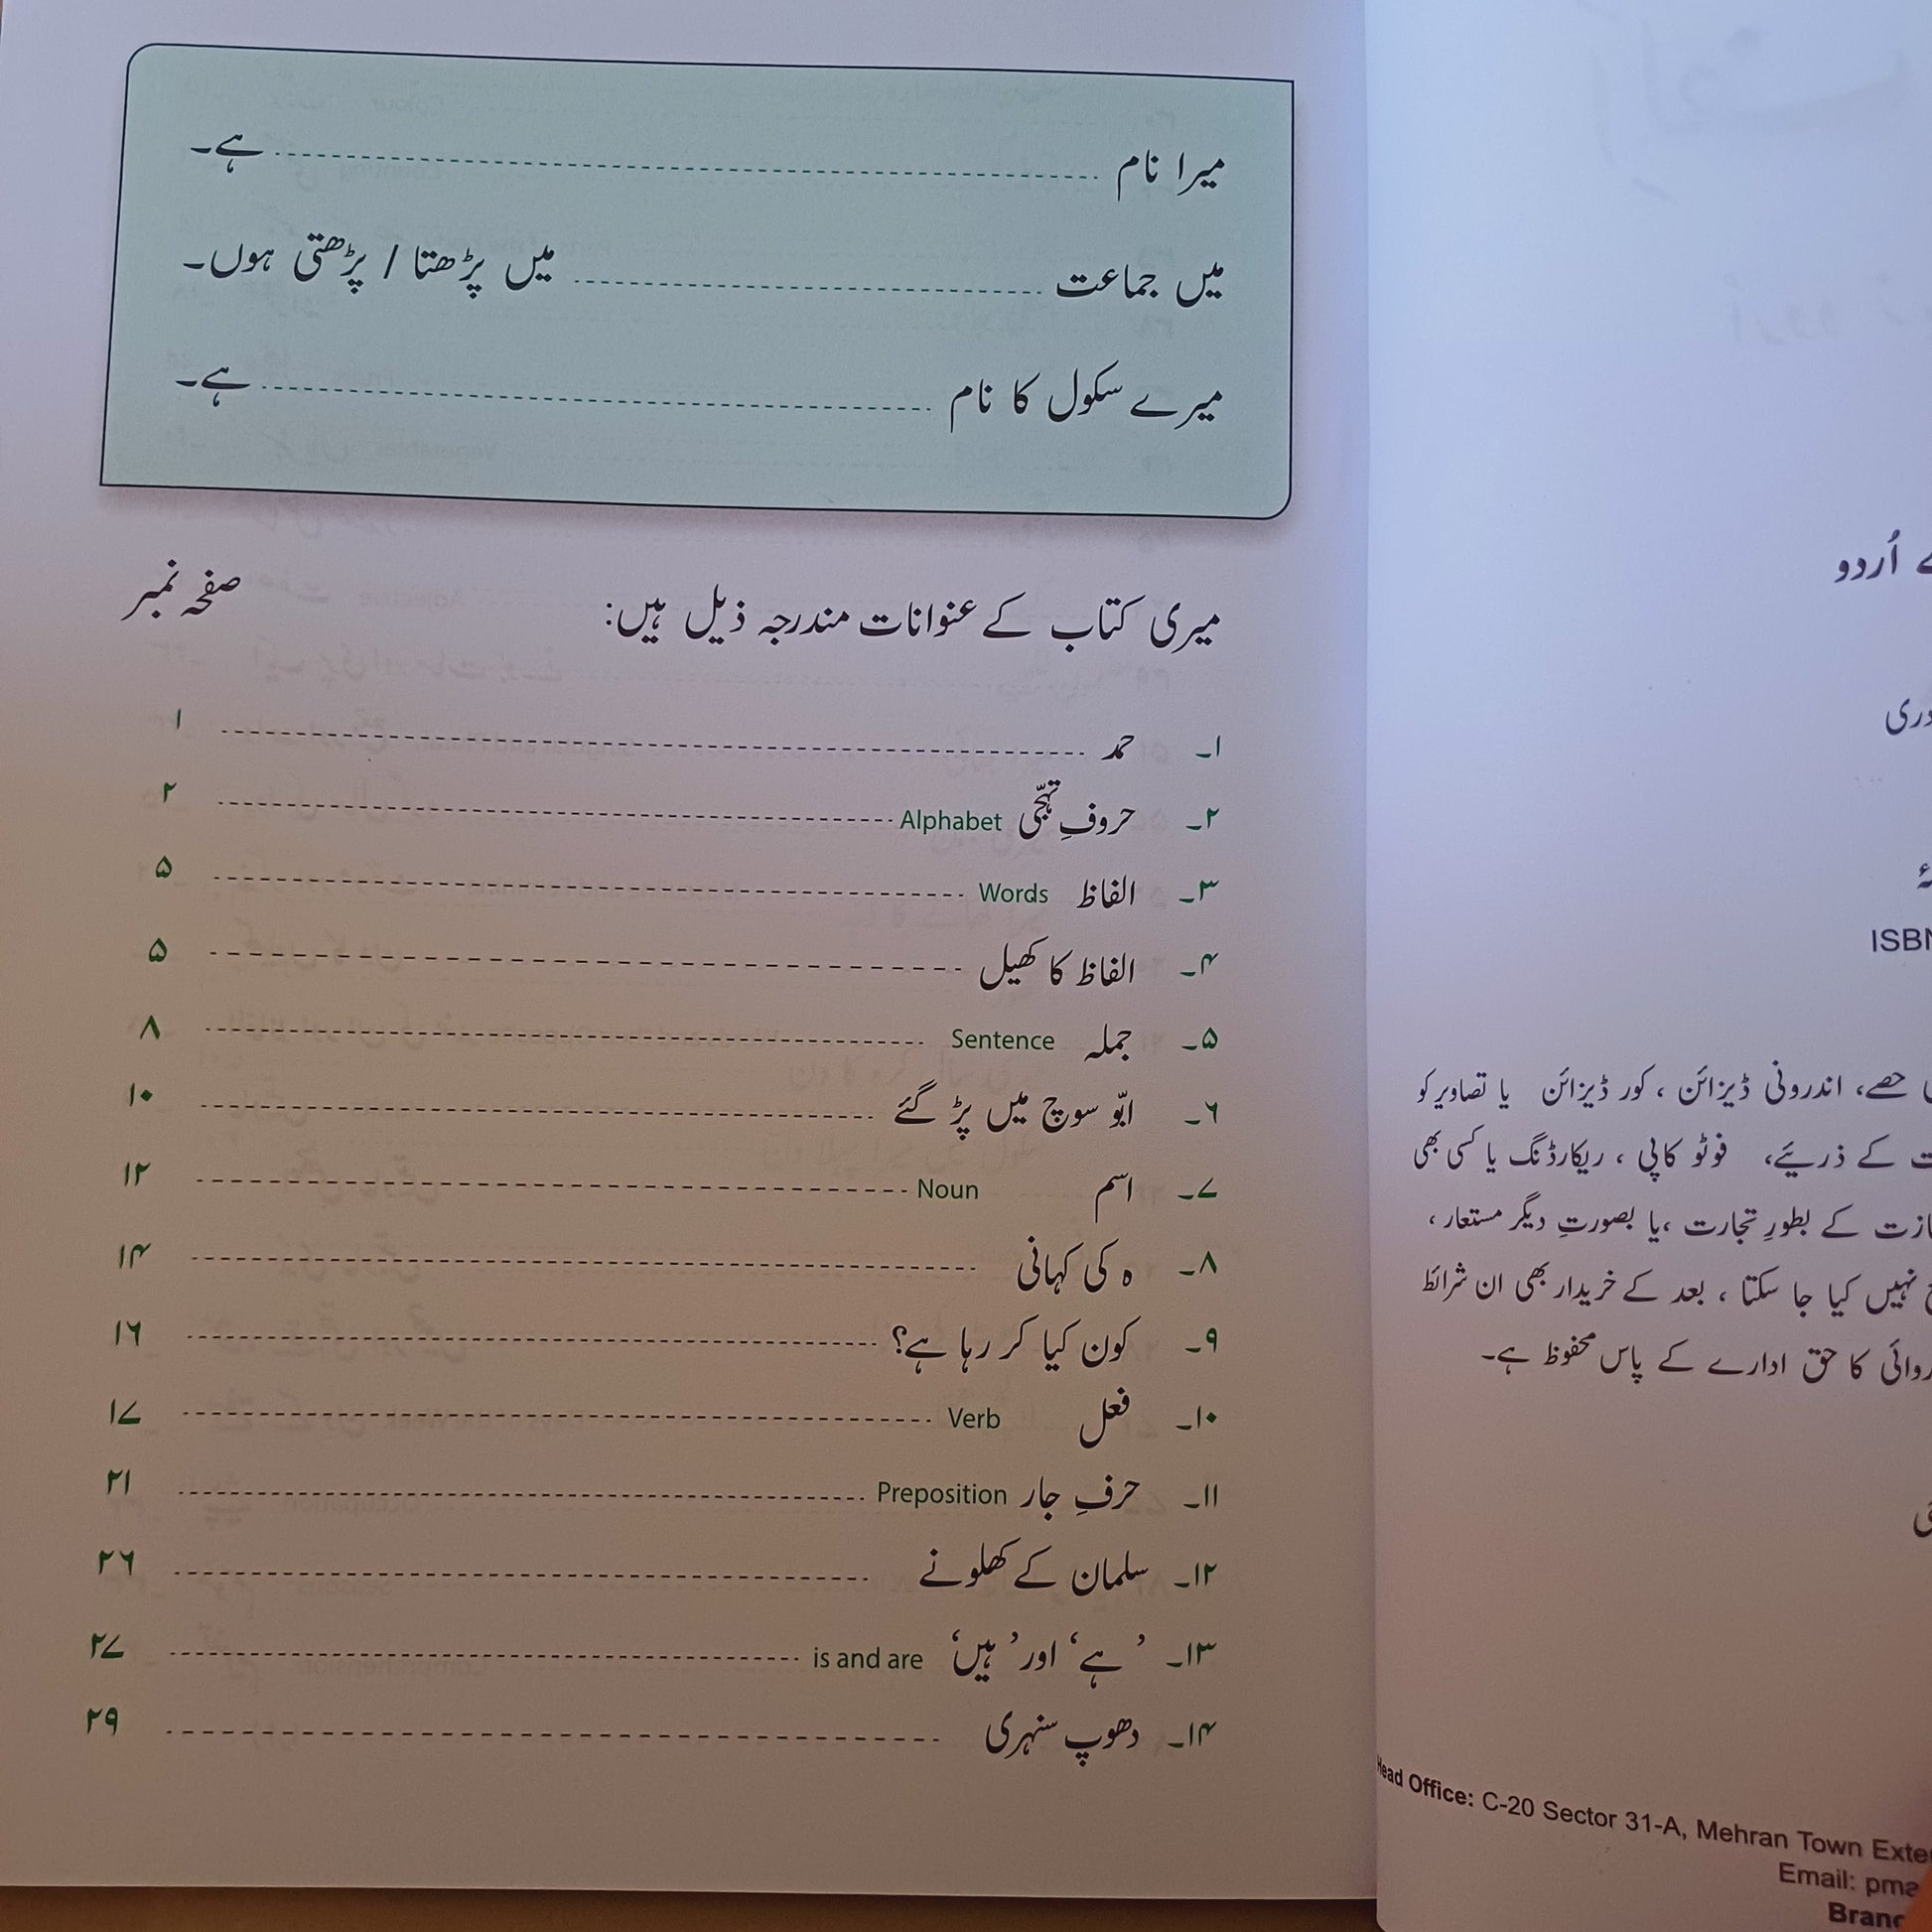 میرا نام ---------- ہے۔
میں جماعت ---------- میں پڑھتا / پڑھتی ہوں۔
میرے سکول کا نام ---------- ہے۔
میری کتاب کے عنوانات مندرجہ ذیل ہیں: صفحہ نمبر
۱۔ حمد ---------- ۱
۲۔ حروفِ تہجّی Alphabet ---------- ۲
۳۔ الفاظ Words ---------- ۵
۴۔ الفاظ کا کھیل ---------- ۵
۵۔ جملہ Sentence ---------- ۸
۶۔ ابّو سوچ میں پڑ گئے ---------- ۱۰
۷۔ اسم Noun ---------- ۱۲
۸۔ ہ کی کہانی ---------- ۱۴
۹۔ کون کیا کر رہا ہے؟ ---------- ۱۶
۱۰۔ فعل Verb ---------- ۱۷
۱۱۔ حرفِ جار Preposition ---------- ۲۱
۱۲۔ سلمان کے کھلونے ---------- ۲۶
۱۳۔ ’ہے‘ اور ’ہیں‘ is and are ---------- ۲۷
۱۴۔ دھوپ سنہری ---------- ۲۹
اُردو
ISBN
حصے، اندرونی ڈیزائن ، کور ڈیزائن یا تصاویر کو
کے ذریئے، فوٹو کاپی ، ریکارڈنگ یا کسی بھی
کے بطورِ تجارت ،یا بصورتِ دیگر مستعار ،
نہیں کیا جا سکتا ، بعد کے خریدار بھی ان شرائط
کا حق ادارے کے پاس محفوظ ہے۔
Head Office: C-20 Sector 31-A, Mehran Town
Email: